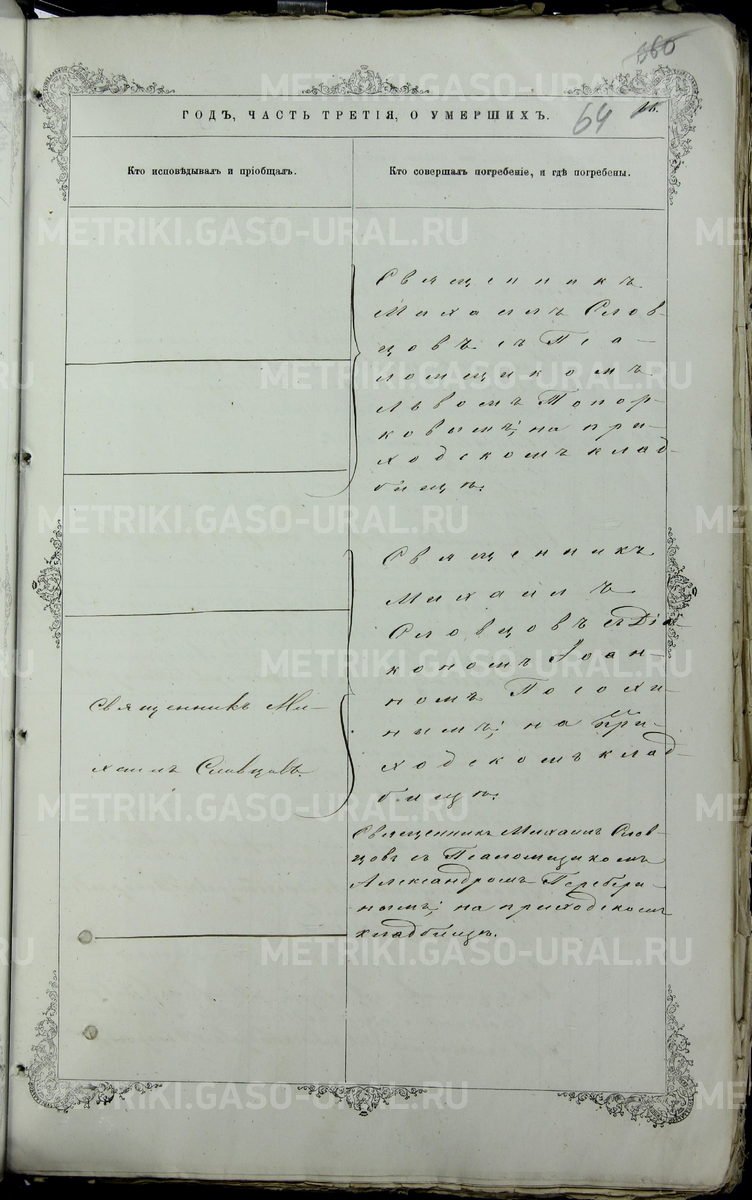 860
ГОДЪ, ЧАСТЬ ТРЕТІЯ, О УМЕРШИХЪ.
64
Кто исповѣдывалъ и пріобщалъ.
Кто совершалъ погребеніе, и гдѣ погребены.
Священникъ
Михаилъ Слов-
цовъ съ Пса-
ломщикомъ
Львомъ Топор-
ковымъ; на при-
ходскомъ клад-
бищѣ.
Священникъ
Михаилъ
Словцовъ съ Діа-
кономъ Іоан-
номъ Посохи-
нымъ; на при-
ходскомъ клад-
бищѣ.
Священникъ Ми-
хаилъ Словцовъ.
Священникъ Михаилъ Слов-
цовъ съ Псаломщикомъ
Александромъ
нымъ; на приходскомъ
кладбищѣ.
METRIKI.GASO-URAL.RU